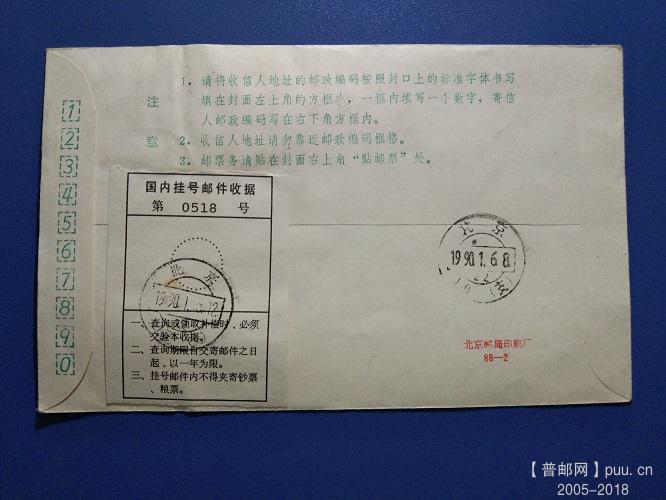 注意
1. 请将收信人地址的邮政编码按照封口上的标准字体书写
填在封面左上角的方框内，一框内填写一个数字，寄信
人邮政编码写在右下角方框内。
2. 收信人地址请勿靠近邮政编码框格。
3. 邮票务请贴在封面右上角“贴邮票”处。
1
2
3
4
5
6
7
8
9
0
国内挂号邮件收据
第 0518 号
北京
1990.1.
一、查询或领取补偿时，必须
交验本收据。
二、查询期限自交寄邮件之日
起，以一年为限。
三、挂号邮件内不得夹寄钞票
、粮票。
北京
1990.1.6.8
支
北京邮局印刷厂
88—2
【普邮网】puu.cn
2005-2018